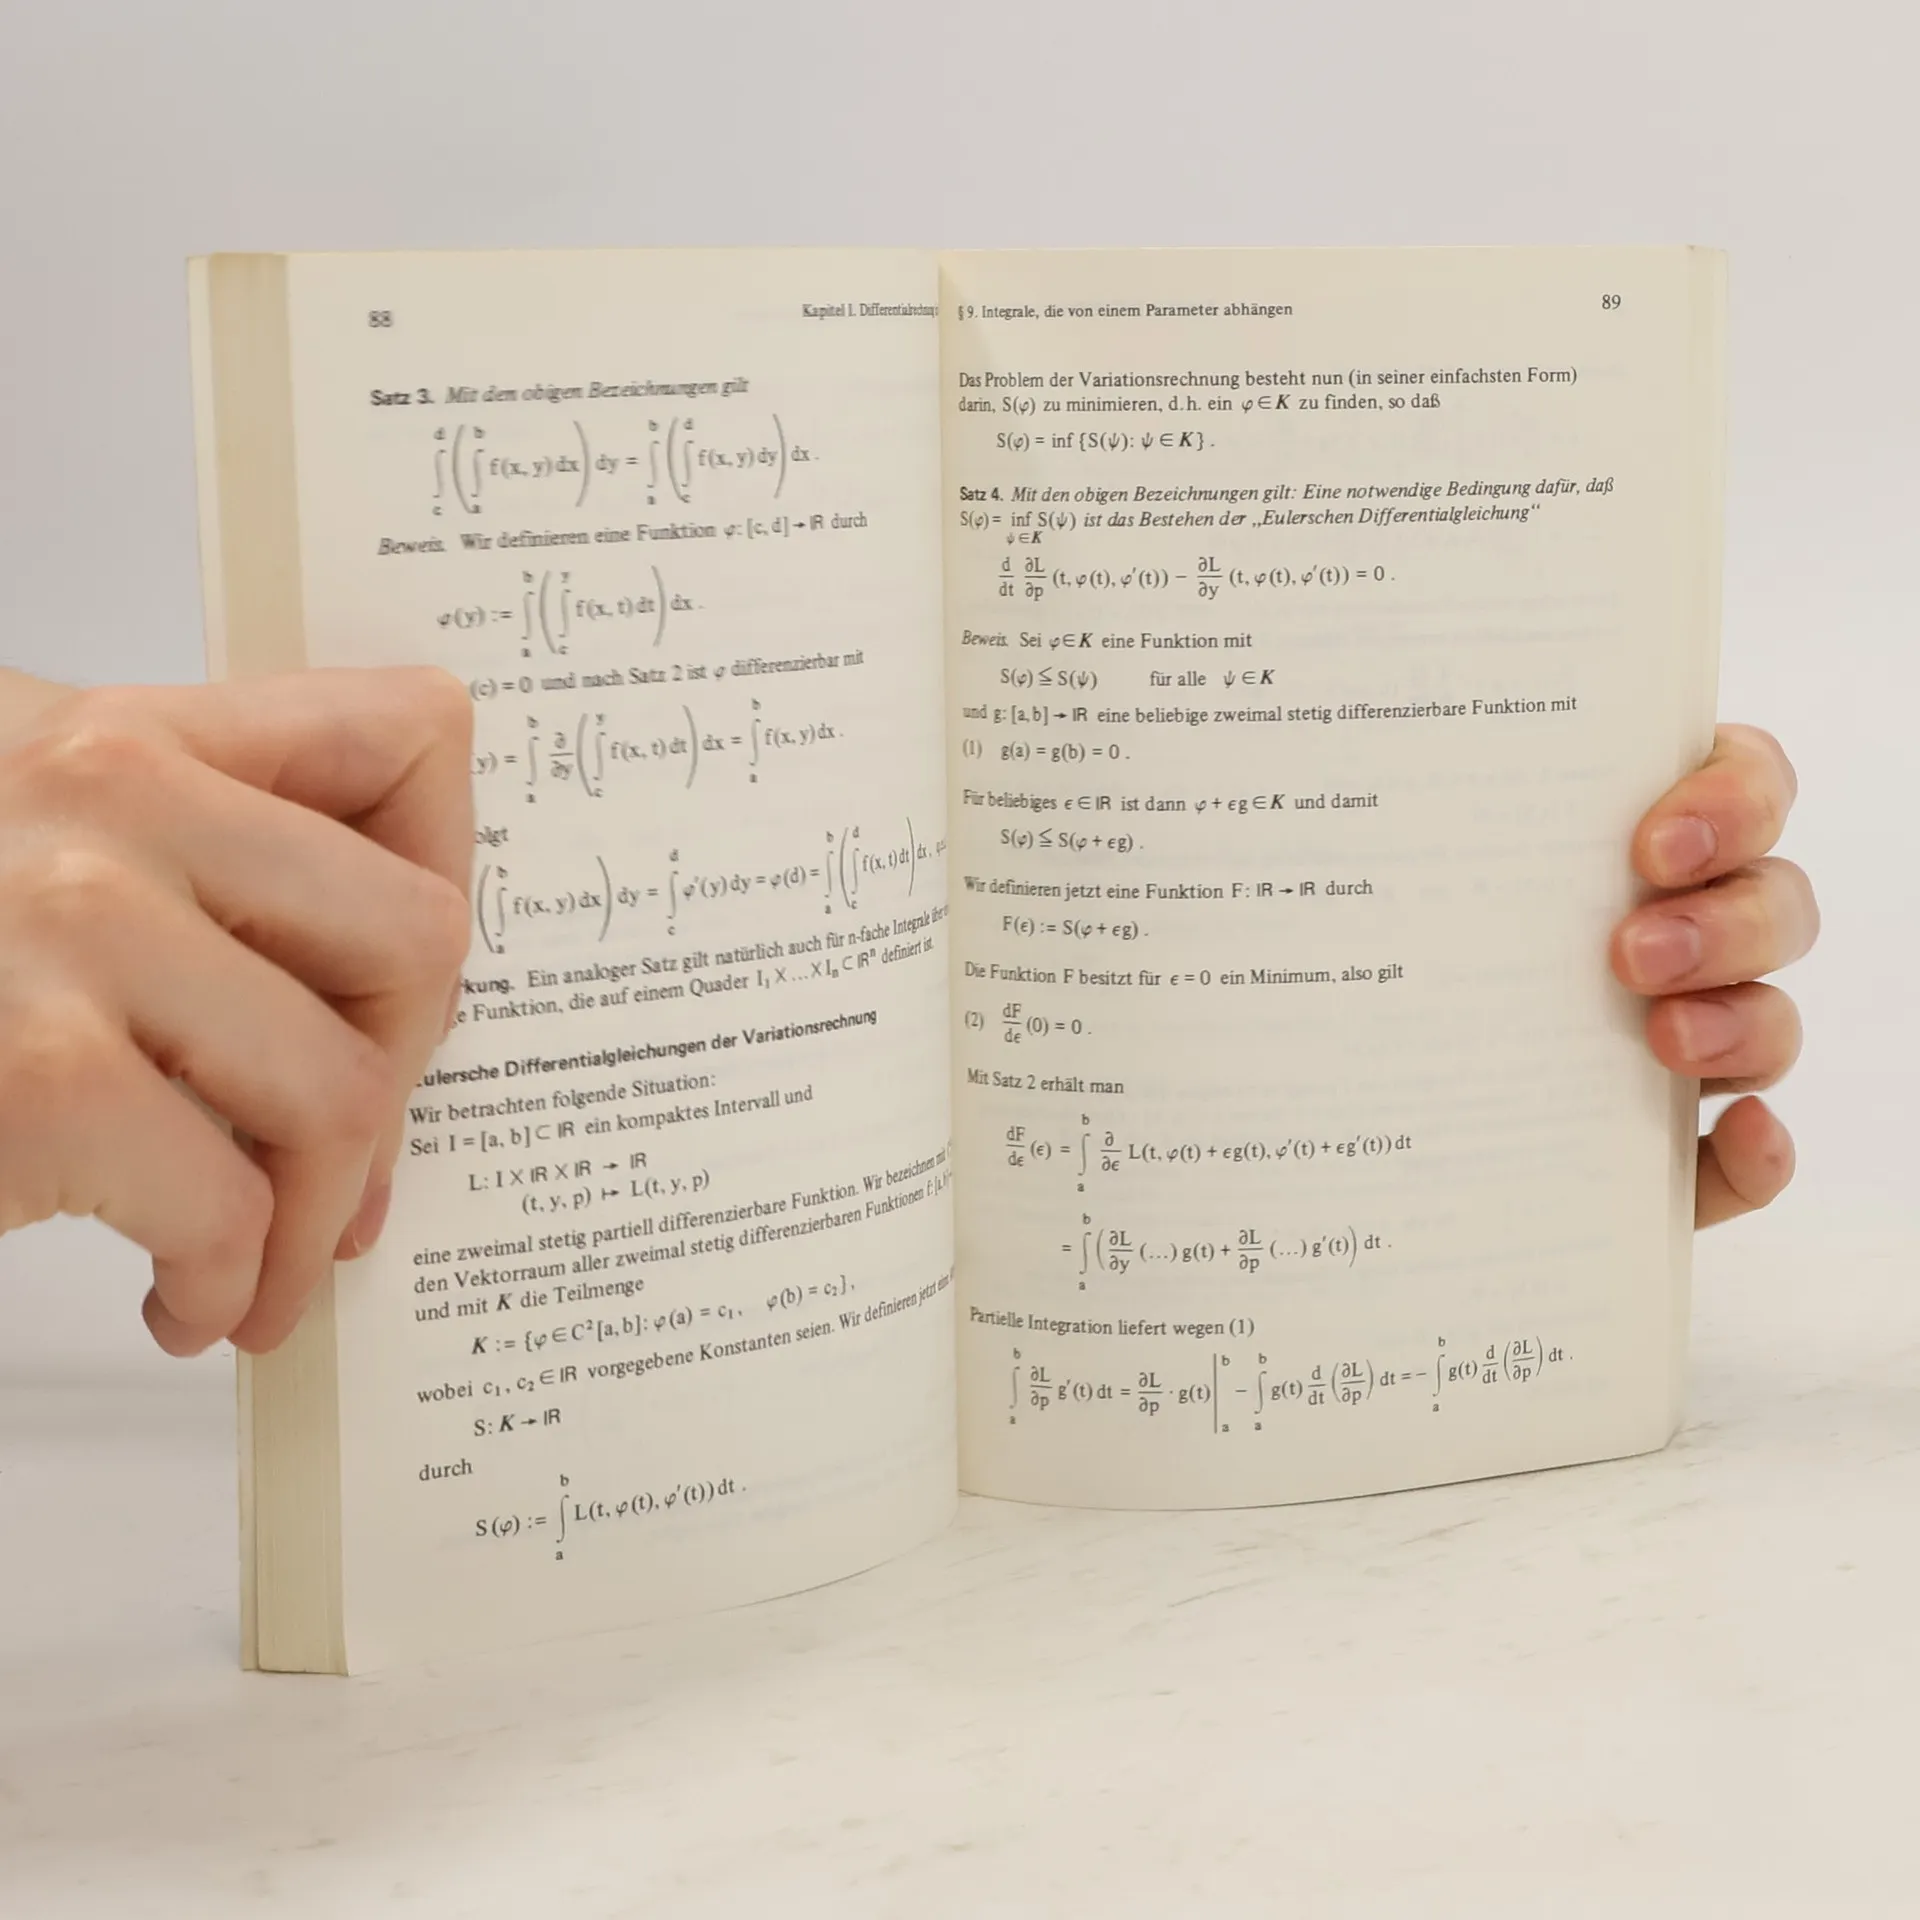 88
Kapitel I.
Satz 3. Mit den obigen Bezeichnungen gilt
∫_c^d (∫_a^b f(x, y) dx) dy = ∫_a^b (∫_c^d f(x, y) dy) dx .
Beweis. Wir definieren eine Funktion φ: [c, d] → ℝ durch
φ(y) := ∫_a^b (∫_c^y f(x, t) dt) dx .
(c) = 0 und nach Satz 2 ist φ differenzierbar mit
(y) = ∫_a^b ∂/∂y (∫_c^y f(x, t) dt) dx = ∫_a^b f(x, y) dx .
olgt
(∫_a^b f(x, y) dx) dy = ∫_c^d φ′(y) dy = φ(d) = ∫_a^b (∫_c^d f(x, t) dt) dx ,
kung. Ein analoger Satz gilt natürlich auch für n-fache Integrale
e Funktion, die auf einem Quader I₁ × ... × Iₙ ⊂ ℝⁿ definiert ist.
ulersche Differentialgleichungen der Variationsrechnung
Wir betrachten folgende Situation:
Sei I = [a, b] ⊂ ℝ ein kompaktes Intervall und
L: I × ℝ × ℝ → ℝ
(t, y, p) ↦ L(t, y, p)
eine zweimal stetig partiell differenzierbare Funktion. Wir bezeichnen mit
den Vektorraum aller zweimal stetig differenzierbaren Funktionen f:
und mit K die Teilmenge
K := {φ ∈ C² [a, b]: φ(a) = c₁, φ(b) = c₂},
wobei c₁, c₂ ∈ ℝ vorgegebene Konstanten seien. Wir definieren jetzt
S: K → ℝ
durch
S(φ) := ∫_a^b L(t, φ(t), φ′(t)) dt .
§ 9. Integrale, die von einem Parameter abhängen
89
Das Problem der Variationsrechnung besteht nun (in seiner einfachsten Form)
darin, S(φ) zu minimieren, d.h. ein φ ∈ K zu finden, so daß
S(φ) = inf {S(ψ): ψ ∈ K} .
Satz 4. Mit den obigen Bezeichnungen gilt: Eine notwendige Bedingung dafür, daß
S(φ) = inf S(ψ) ist das Bestehen der „Eulerschen Differentialgleichung“
ψ ∈ K
d/dt ∂L/∂p (t, φ(t), φ′(t)) − ∂L/∂y (t, φ(t), φ′(t)) = 0 .
Beweis. Sei φ ∈ K eine Funktion mit
S(φ) ≦ S(ψ) für alle ψ ∈ K
und g: [a, b] → ℝ eine beliebige zweimal stetig differenzierbare Funktion mit
(1) g(a) = g(b) = 0 .
Für beliebiges ε ∈ ℝ ist dann φ + εg ∈ K und damit
S(φ) ≦ S(φ + εg) .
Wir definieren jetzt eine Funktion F: ℝ → ℝ durch
F(ε) := S(φ + εg) .
Die Funktion F besitzt für ε = 0 ein Minimum, also gilt
(2) dF/dε (0) = 0 .
Mit Satz 2 erhält man
dF/dε (ε) = ∫_a^b ∂/∂ε L(t, φ(t) + εg(t), φ′(t) + εg′(t)) dt
= ∫_a^b (∂L/∂y (...) g(t) + ∂L/∂p (...) g′(t)) dt .
Partielle Integration liefert wegen (1)
∫_a^b ∂L/∂p g′(t) dt = ∂L/∂p · g(t) |_a^b − ∫_a^b g(t) d/dt (∂L/∂p) dt = − ∫_a^b g(t) d/dt (∂L/∂p) dt .